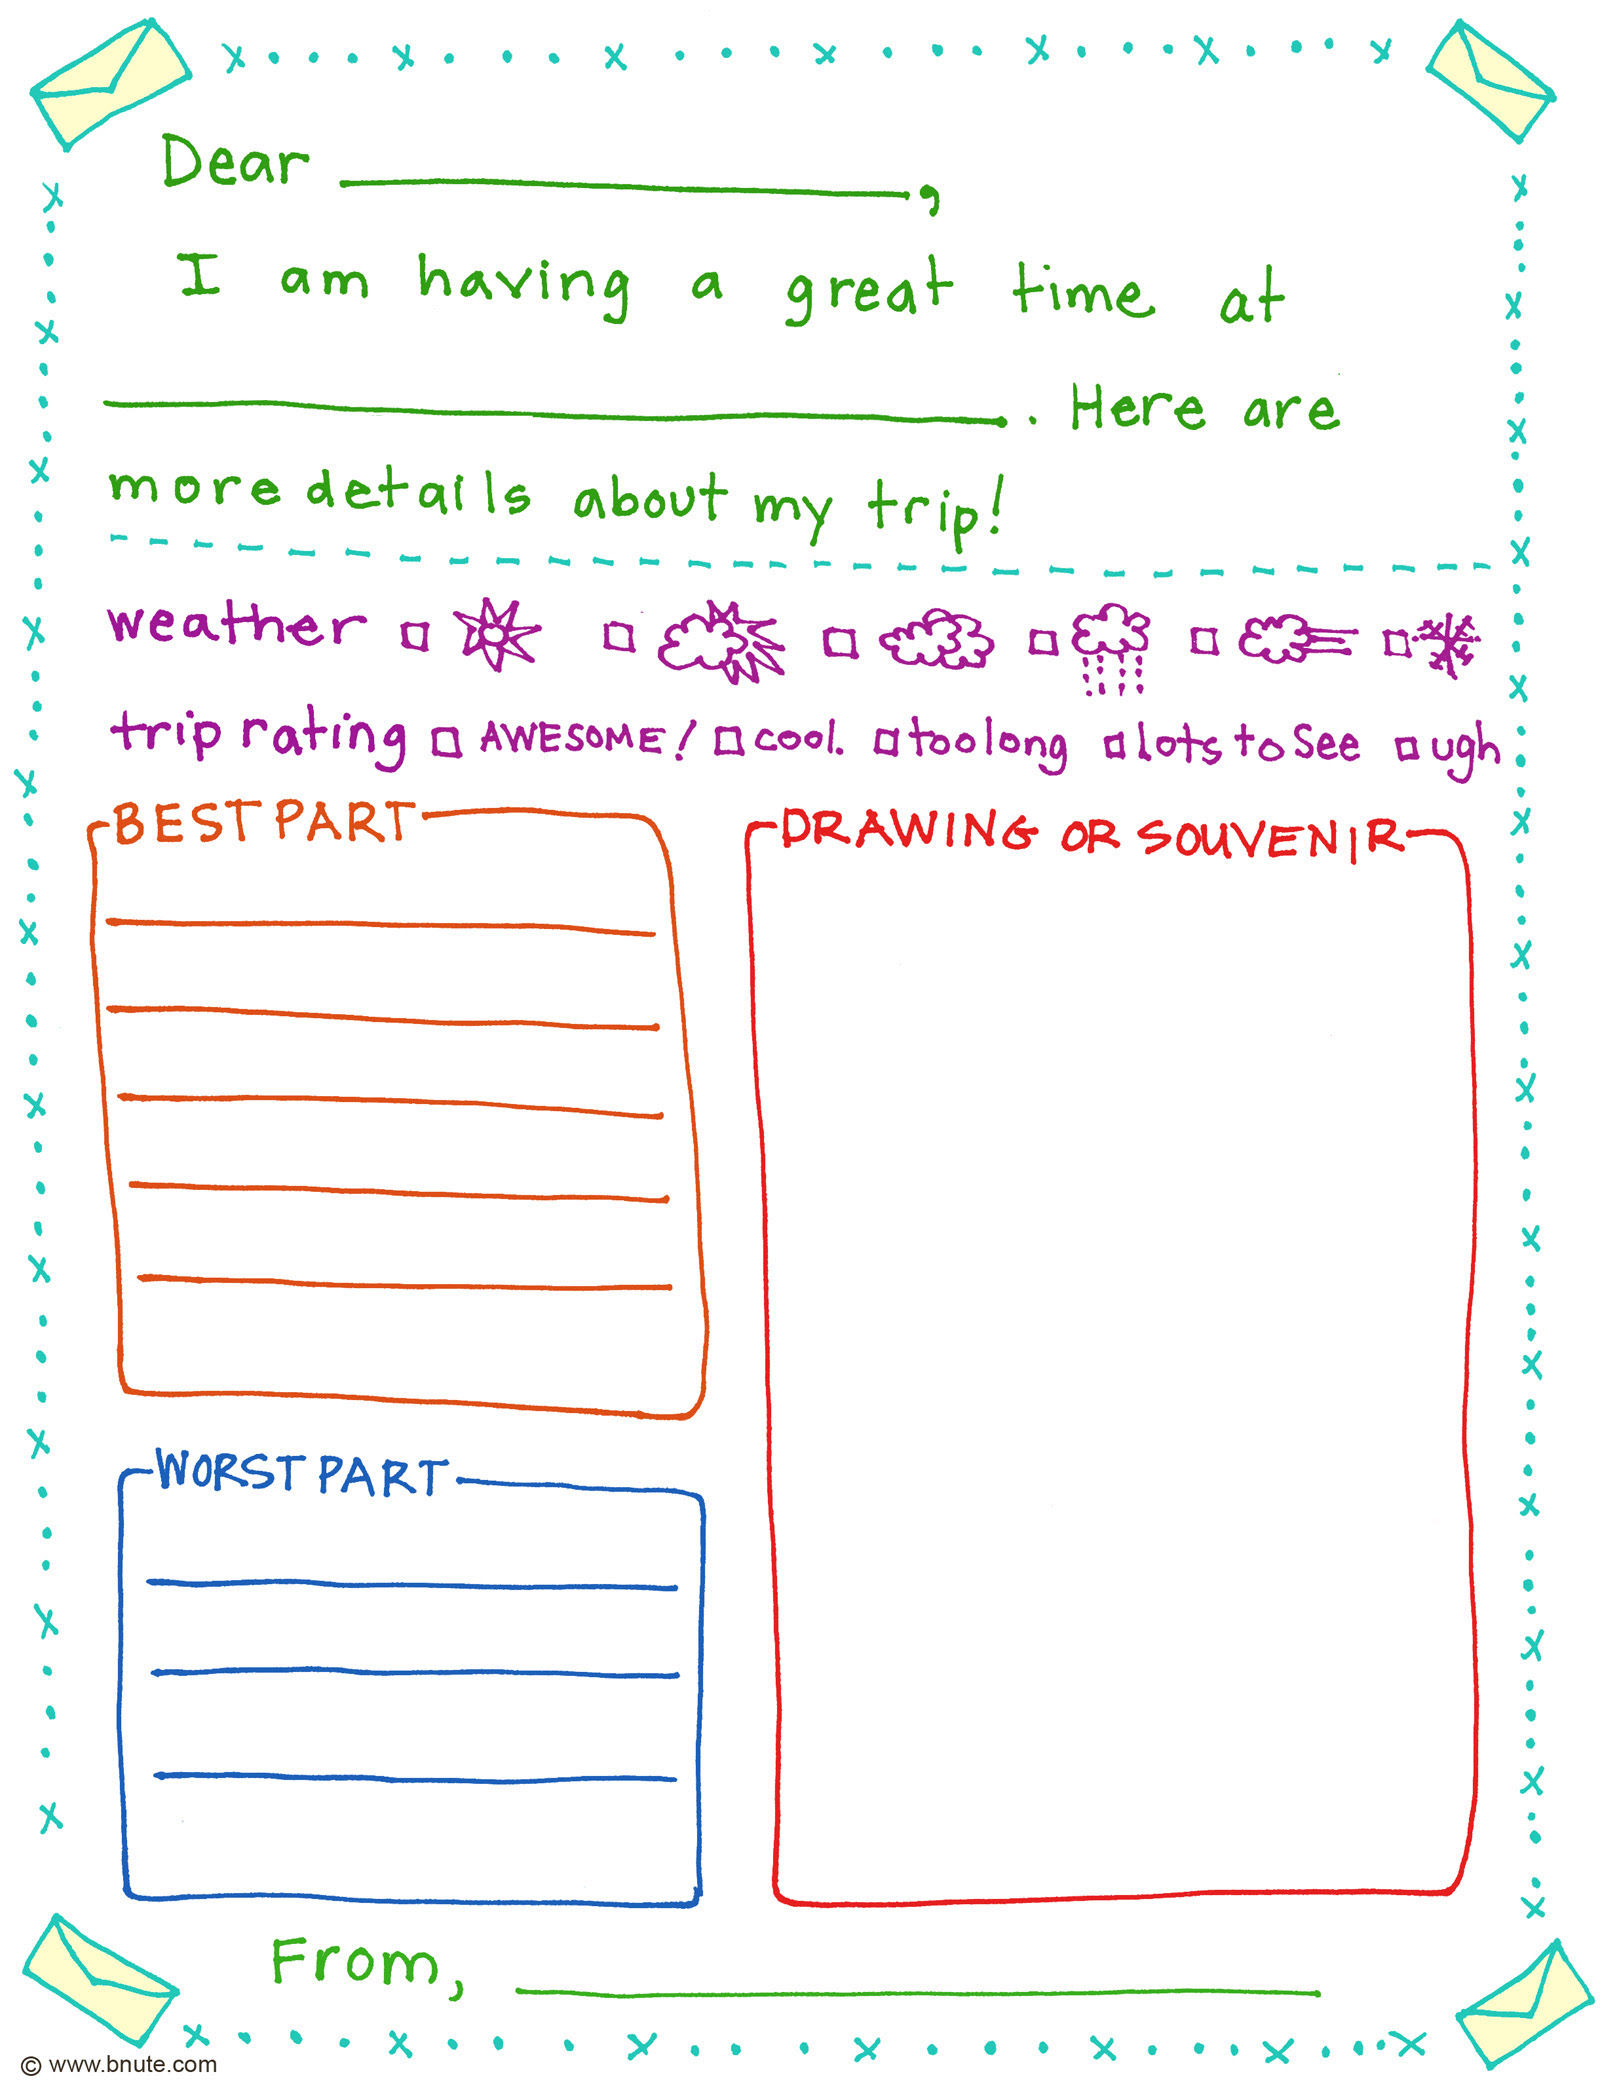 Dear ,
I am having a great time at
. Here are
more details about my trip!
weather
trip rating AWESOME! cool. too long lots to see ugh
BEST PART
DRAWING OR SOUVENIR
WORST PART
From,
© www.bnute.com